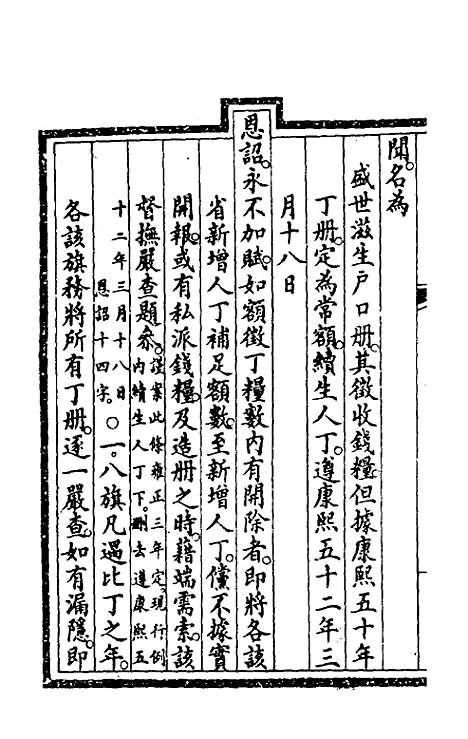 聞。名為
盛世滋生戶口冊。其徵收錢糧。但據康熙五十年
丁冊。定為常額。續生人丁。遵康熙五十二年三
月十八日
恩詔。永不加賦。如額徵丁糧數內有開除者。即將各該
省新增人丁補足額數。至新增人丁。儻不據實
開報。或有私派錢糧。及造冊之時。藉端需索。該
督撫嚴查題參。謹案此條雍正三年定。現行例
內續生人丁下。刪去遵康熙五
十二年三月十八日
恩詔十四字。○一。八旗凡遇比丁之年。
各該旗務將所有丁冊。逐一嚴查。如有漏隱。即